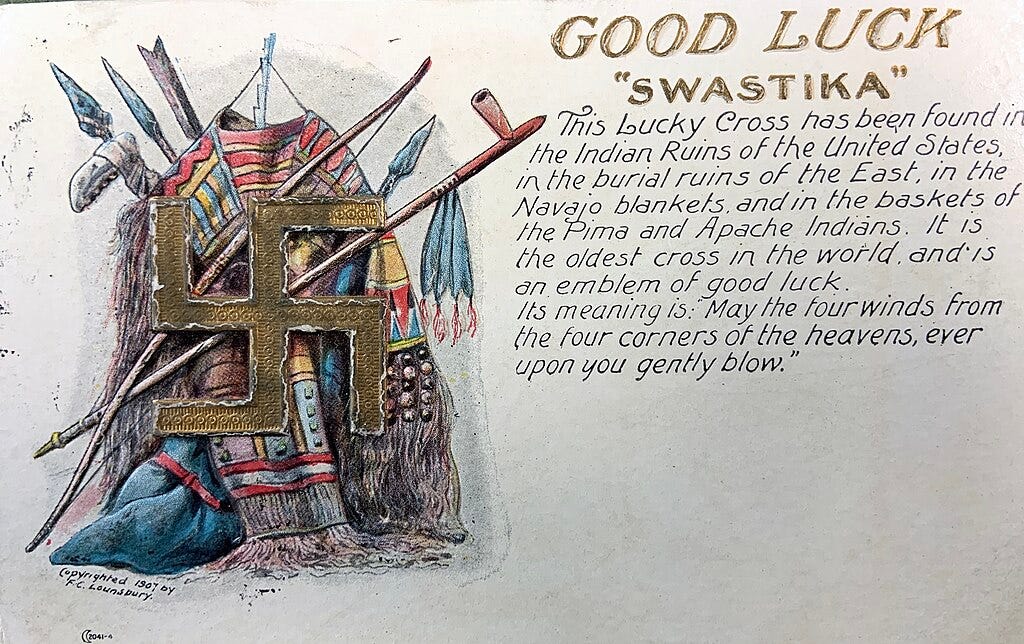 GOOD LUCK
"SWASTIKA"
This Lucky Cross has been found in
the Indian Ruins of the United States,
in the burial ruins of the East, in the
Navajo blankets, and in the baskets of
the Pima and Apache Indians. It is
the oldest cross in the world, and is
an emblem of good luck.
Its meaning is: "May the four winds from
the four corners of the heavens, ever
upon you gently blow."
Copyrighted 1907 by
F.C. Lounsbury.
2041-4